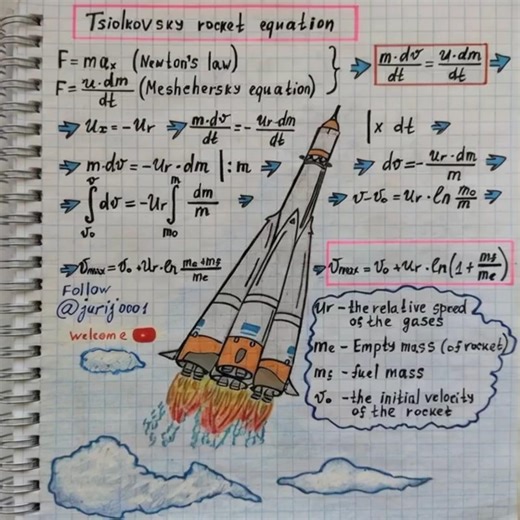 Tsiolkovsky rocket equation
F = maₓ (Newton's law)
F = u·dm/dt (Meshchersky equation) } ⇒ m·dv/dt = u·dm/dt ⇒
⇒ uₓ = -uᵣ ⇒ m·dv/dt = - uᵣ·dm/dt | x dt ⇒
⇒ m·dv = -uᵣ·dm |:m ⇒ dv = - uᵣ·dm/m ⇒
⇒ ∫_{v₀}^{v} dv = -uᵣ ∫_{m₀}^{m} dm/m ⇒ v-v₀ = uᵣ·ln m₀/m ⇒
⇒ vmax = v₀ + uᵣ·ln (me+mf)/me ⇒ vmax = v₀ + uᵣ·ln(1 + mf/me)
Follow
@jurij0001
Welcome
uᵣ - the relative speed
of the gases
me - Empty mass (of rocket)
mf - fuel mass
v₀ - the initial velocity
of the rocket